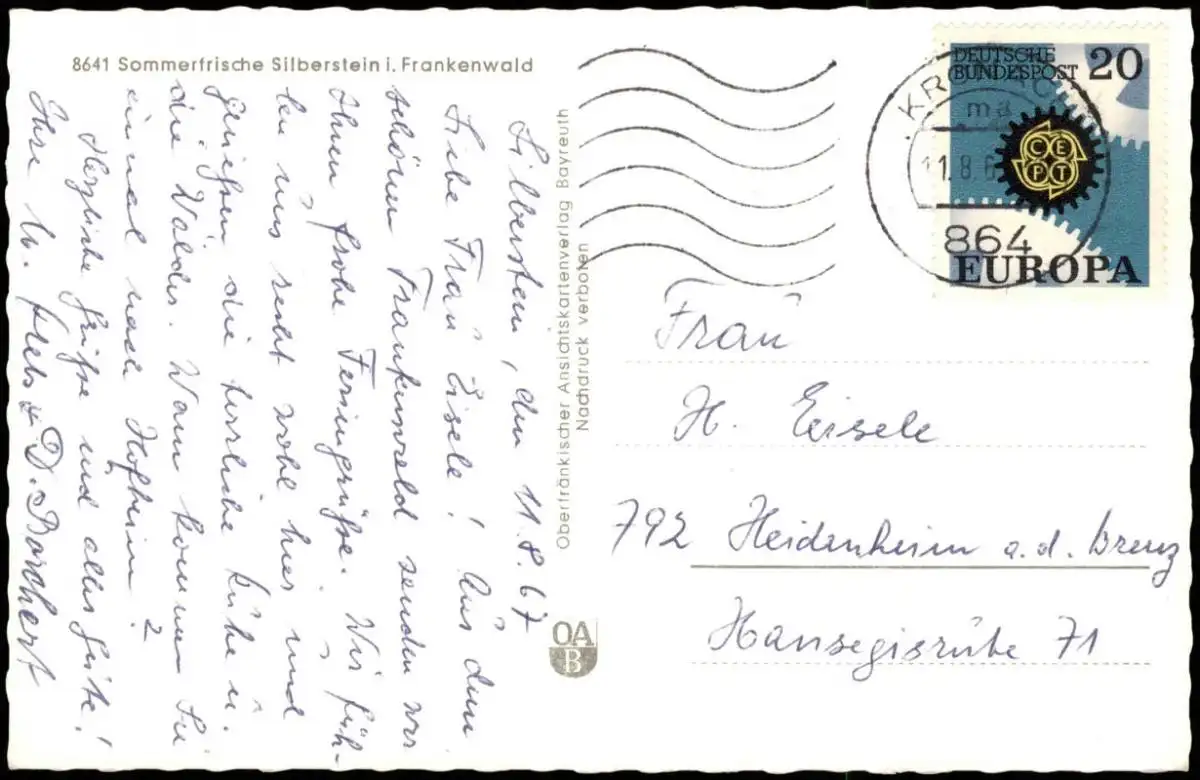 8641 Sommerfrische Silberstein i. Frankenwald
Silberstein, den 11.8.67
Liebe Frau Eisele! Aus dem
schönen Frankenwald senden wir
Ihnen frohe Feriengrüße. Wir füh-
len uns recht wohl hier und
genießen die herrliche Ruhe u.
die Wälder. Wann kommen Sie
einmal nach Hofheim?
Herzliche Grüße und alles Gute!
Ihre D. Borchert
Oberfränkischer Ansichtskartenverlag Bayreuth
Nachdruck verboten
OA
B
DEUTSCHE
BUNDESPOST 20
CEPT
EUROPA
11.8.6
864
Frau
H. Eisele
792 Heidenheim a.d. Brenz
Hansegisreute 71